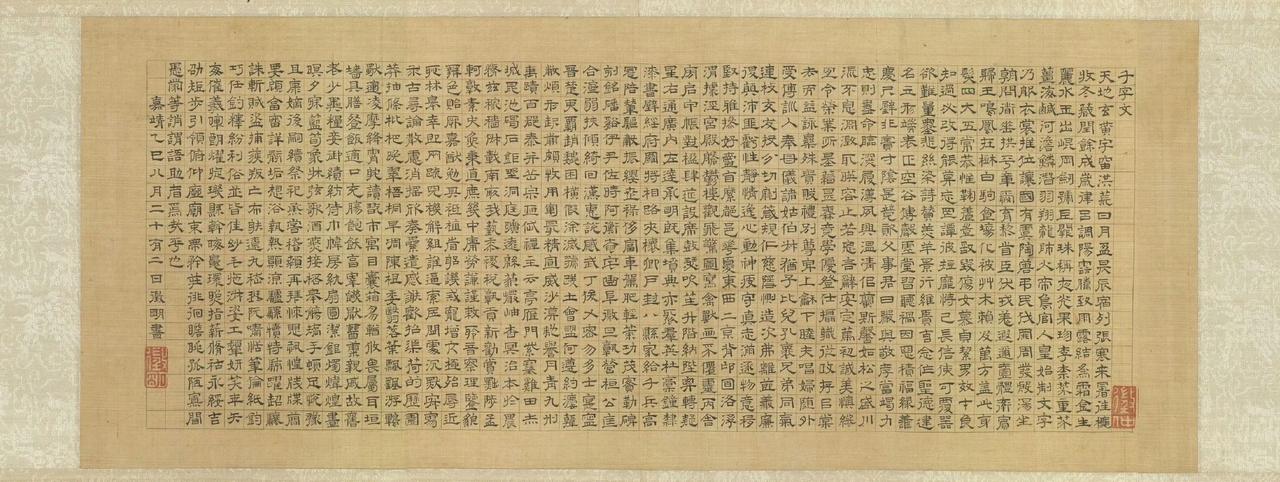 千字文
天地玄黃宇宙洪荒日月盈昃辰宿列張寒來暑往秋
收冬藏閏餘成歲律呂調陽雲騰致雨露結為霜金生
麗水玉出崑岡劍號巨闕珠稱夜光果珍李柰菜重芥
薑海鹹河淡鱗潛羽翔龍師火帝鳥官人皇始制文字
乃服衣裳推位讓國有虞陶唐弔民伐罪周發殷湯坐
朝問道垂拱平章愛育黎首臣伏戎羌遐邇壹體率賓
歸王鳴鳳在樹白駒食場化被草木賴及萬方蓋此身
髮四大五常恭惟鞠養豈敢毀傷女慕貞潔男效才良
知過必改得能莫忘罔談彼短靡恃己長信使可覆器
欲難量墨悲絲染詩讚羔羊景行維賢克念作聖德建
名立形端表正空谷傳聲虛堂習聽禍因惡積福緣善
慶尺璧非寶寸陰是競資父事君曰嚴與敬孝當竭力
忠則盡命臨深履薄夙興溫凊似蘭斯馨如松之盛川
流不息淵澄取映容止若思言辭安定篤初誠美慎終
宜令榮業所基藉甚無竟學優登仕攝職從政存以甘棠
去而益詠樂殊貴賤禮別尊卑上和下睦夫唱婦隨外
受傅訓入奉母儀諸姑伯叔猶子比兒孔懷兄弟同氣
連枝交友投分切磨箴規仁慈隱惻造次弗離節義廉
退顛沛匪虧性靜情逸心動神疲守真志滿逐物意移
堅持雅操好爵自縻都邑華夏東西二京背邙面洛浮
渭據涇宮殿盤鬱樓觀飛驚圖寫禽獸畫彩仙靈丙舍
傍啟甲帳對楹肆筵設席鼓瑟吹笙升階納陛弁轉疑
星右通廣內左達承明既集墳典亦聚群英杜稿鍾隸
漆書壁經府羅將相路俠槐卿戶封八縣家給千兵高
冠陪輦驅轂振纓世祿侈富車駕肥輕策功茂實勒碑
刻銘磻溪伊尹佐時阿衡奄宅曲阜微旦孰營桓公匡
合濟弱扶傾綺迴漢惠說感武丁俊乂密勿多士寔寧
晉楚更霸趙魏困橫假途滅虢踐土會盟何遵約法韓
弊煩刑起翦頗牧用軍最精宣威沙漠馳譽丹青九州
禹跡百郡秦并嶽宗恆岱禪主云亭雁門紫塞雞田赤
城昆池碣石鉅野洞庭曠遠綿邈巖岫杳冥治本於農
務茲稼穡俶載南畝我藝黍稷稅熟貢新勸賞黜陟孟
軻敦素史魚秉直庶幾中庸勞謙謹敕聆音察理鑑貌
辨色貽厥嘉猷勉其祗植省躬譏誡寵增抗極殆辱近
恥林皋幸即兩疏見機解組誰逼索居閒處沉默寂寥
求古尋論散慮逍遙欣奏累遣慼謝歡招渠荷的歷園
莽抽條枇杷晚翠梧桐早凋陳根委翳落葉飄颻游鵾
獨運凌摩絳霄耽讀翫市寓目囊箱易輶攸畏屬耳垣
牆具膳餐飯適口充腸飽飫烹宰飢厭糟糠親戚故舊
老少異糧妾御績紡侍巾帷房紈扇圓潔銀燭煒煌晝
眠夕寐藍筍象床弦歌酒宴接杯舉觴矯手頓足悅豫
且康嫡後嗣續祭祀烝嘗稽顙再拜悚懼恐惶牋牒簡
要顧答審詳骸垢想浴執熱願涼驢騾犢特駭躍超驤
誅斬賊盜捕獲叛亡布射遼丸嵇琴阮嘯恬筆倫紙鈞
巧任釣釋紛利俗並皆佳妙毛施淑姿工顰妍笑年矢
每催羲暉朗曜璇璣懸斡晦魄環照指薪修祜永綏吉
劭矩步引領俯仰廊廟束帶矜莊徘徊瞻眺孤陋寡聞
愚蒙等誚謂語助者焉哉乎也
嘉靖乙巳八月二十有二日徵明書